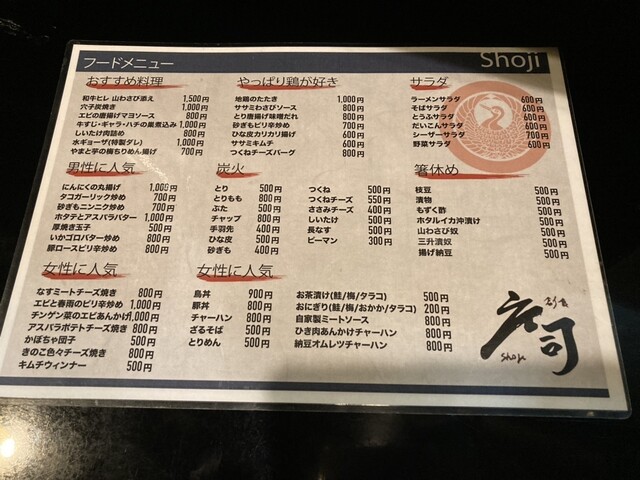 フードメニュー
Shoji
おすすめ料理
和牛ヒレ 山わさび添え 1,500円
穴子炭焼き 1,000円
エビの唐揚げマヨソース 800円
牛すじ・ギャラ・ハチの黒煮込み 1,000円
しいたけ肉詰め 800円
水ギョーザ(特製ダレ) 1,000円
やまと芋の梅ちりめん揚げ 700円
やっぱり鶏が好き
地鶏のたたき 1,000円
ササミわさびソース 800円
とり唐揚げ味噌だれ 800円
砂ぎもピリ辛炒め 700円
ひな皮カリカリ揚げ 600円
ササミキムチ 600円
つくねチーズバーグ 800円
サラダ
ラーメンサラダ 600円
そばサラダ 600円
とうふサラダ 600円
だいこんサラダ 600円
シーザーサラダ 700円
野菜サラダ 600円
男性に人気
にんにくの丸揚げ 1,000円
タコガーリック炒め 700円
砂ぎもニンニク炒め 700円
ホタテとアスパラバター 1,000円
厚焼き玉子 500円
いかゴロバター炒め 800円
豚ロースピリ辛炒め 800円
炭火
とり 500円
とりもも 800円
ぶた 500円
チャップ 800円
手羽先 400円
ひな皮 500円
砂ぎも 400円
つくね 500円
つくねチーズ 550円
ささみチーズ 400円
しいたけ 500円
長なす 500円
ピーマン 300円
箸休め
枝豆 500円
漬物 500円
もずく酢 500円
ホタルイカ沖漬け 500円
山わさび奴 500円
三升漬奴 500円
揚げ納豆 500円
女性に人気
なすミートチーズ焼き 800円
エビと春雨のピリ辛炒め 1,000円
チンゲン菜のエビあんかけ 1,000円
アスパラポテトチーズ焼き 800円
かぼちゃ団子 500円
きのこ色々チーズ焼き 800円
キムチウィンナー 500円
女性に人気
鳥丼 900円
豚丼 800円
チャーハン 800円
ざるそば 500円
とりめん 500円
お茶漬け(鮭/梅/タラコ) 500円
おにぎり(鮭/梅/おかか/タラコ) 200円
自家製ミートソース 800円
ひき肉あんかけチャーハン 800円
納豆オムレツチャーハン 800円
庄司
Shoji